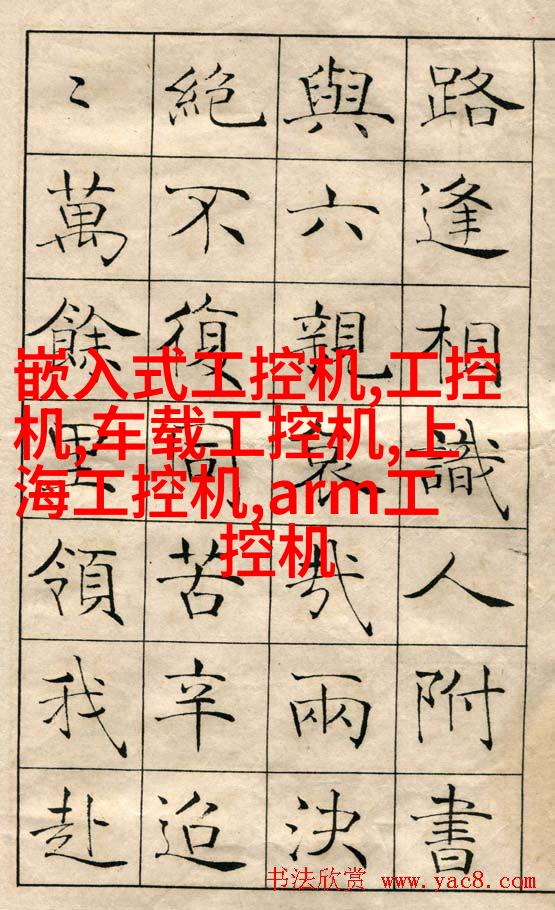 路逢相識人附書
與六親哀哉兩決
絕不復同苦辛迢
〻萬餘里領我赴
嵌入式工控机,工控
机,车载工控机,上
海工控机,arm工
控机
书法欣赏 www.yac8.com